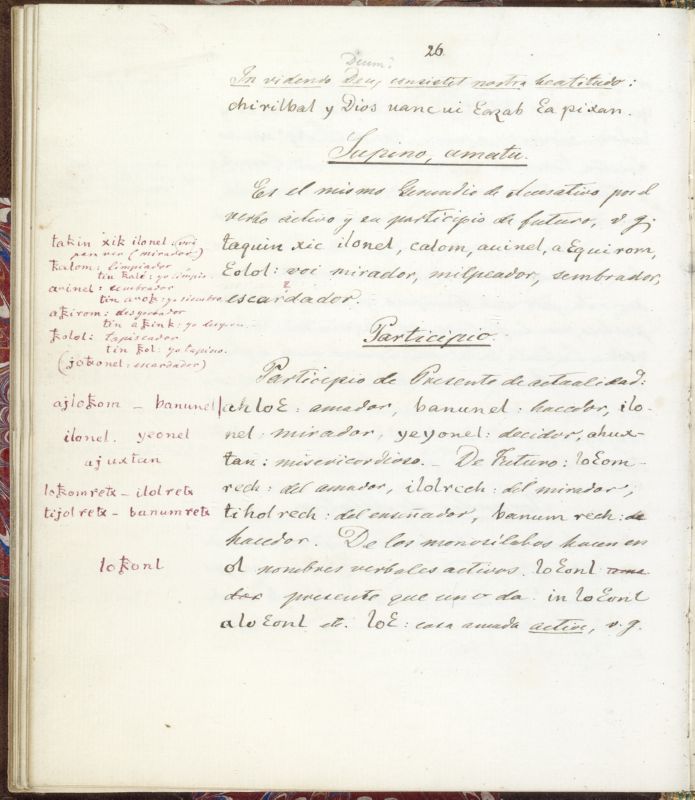 26
Deum:
In videndo Deu, consistet nostra beatitudo:
chirilbal y Dios uancui Ɛazab Ɛa pixan.
Supino, amatu.
Es el mismo Gerundio de Acusativo por el
verbo activo y su participio de futuro, v g;
taquin xic ilonel, calom, auinel, aƐquirom,
Ɛolol: voi mirador, milpeador, sembrador,
escardador.
Participio.
Participio de Presente de actualidad:
ahloƐ: amador, banunel: hacedor, ilo-
nel: mirador, yeyonel: decidor, ahux-
tan: misericordioso. _ De Futuro: loƐom-
rech: del amador, ilolrech: del mirador,
tiholrech: del enseñador, banum rech: de
hacedor. De los monosilabos hacen en
ol nombres verbales activos. loƐonl ama
dor presente que uno da. in loƐonl
a loƐonl etc. loƐ: cosa amada active, v. g.
takin xik ilonel: voi
para ver (mirador)
ꝁalom: limpiador
tin ꝁalé: yo limpio.
avinel: sembrador
tin avoꝁ: yo siembro.
aꝁirom: desgorbador
tin aꝁink:
ꝁolol: tapiscador
tin ꝁol: yo tapisco.
(joꝁonel: escardador)
ajloꝁom _ banunel
ilonel. yeonel
ajuxtan
loꝁomretx _ ilolretx
tijolretx _ banumretx
loꝁonl